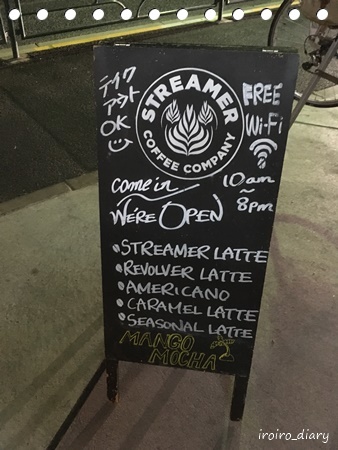 テイク
アウト
OK
STREAMER
COFFEE COMPANY
FREE
Wi-Fi
come in
WE'RE OPEN
10am
~
8pm
STREAMER LATTE
REVOLVER LATTE
AMERICANO
CARAMEL LATTE
SEASONAL LATTE
MANGO
MOCHA
iroiro_diary